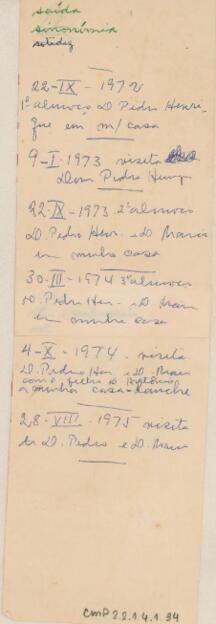 saúda
sinonímia
nitidez
22-IX-1972
1º almoço D. Pedro Henri-
que em m/ casa
9-I-1973 visita
Dom Pedro Henrique
22-IX-1973 2º almoço
D. Pedro Hen. e D. Maria
em minha casa
30-III-1974 3º almoço
D. Pedro Hen. e D. Maria
em minha casa
4-X-1974 - visita
D. Pedro Hen. e D. Maria
com o
a minha casa-lanche
28-VIII-1975 visita
de D. Pedro e D. Maria
CMP 2.2.1.4.1.94